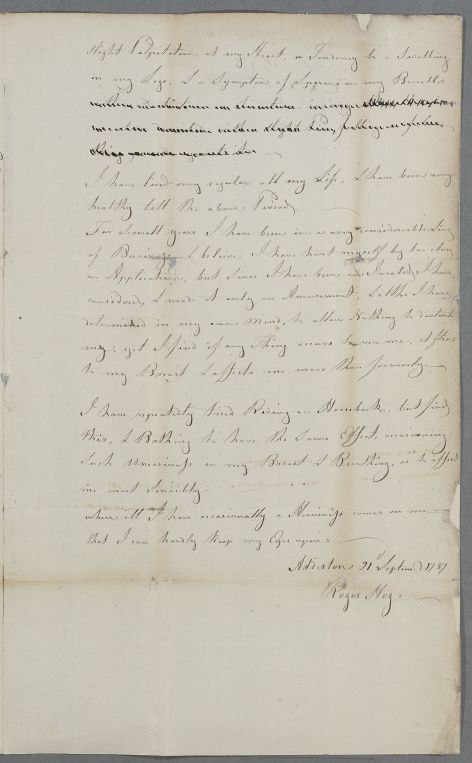 Slight Palpitation at my Heart, a Tendency to a Swelling
in my Legs, & a Symptom of Spasms in my Bowells
I have lived very regular all my Life, & have been very
healthy till the above Period
For Severall years I have been in a very considerable Line
of Business & I believe, I have hurt myself by too close
an Application, but since I have been an Invalid, I have
considered, & made it only an Amusement, & altho I have
determined in my own Mind, to allow Nothing to disturb
me, yet I find if any Thing occurs to vex me, it flies
to my Breast & affects me more than formerly.
I have repeatedly tried Riding on Horseback, but find
this, & Bathing to have the Same Effect, occasioning
Such Uneasiness in my Breast & Breathing, as to affect
me most Sensibly
when ill I have occasionally a Heaviness comes on me
that I can hardly keep my Eyes open
21st Septem 1789
Roger Hog